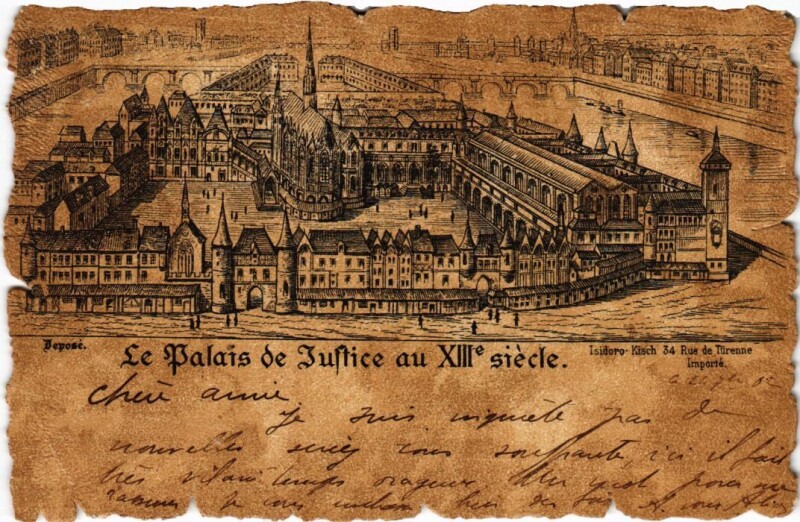 Déposé.
Le Palais de Justice au XIIIe siècle.
Isidoro-Kisch 34 Rue de Türenne
Importé.
chère amie
je suis inquiète pas de
nouvelles seriez vous souffrante, ici il fait
très vilain temps orageux. Un mot pour me
rassurer je vous